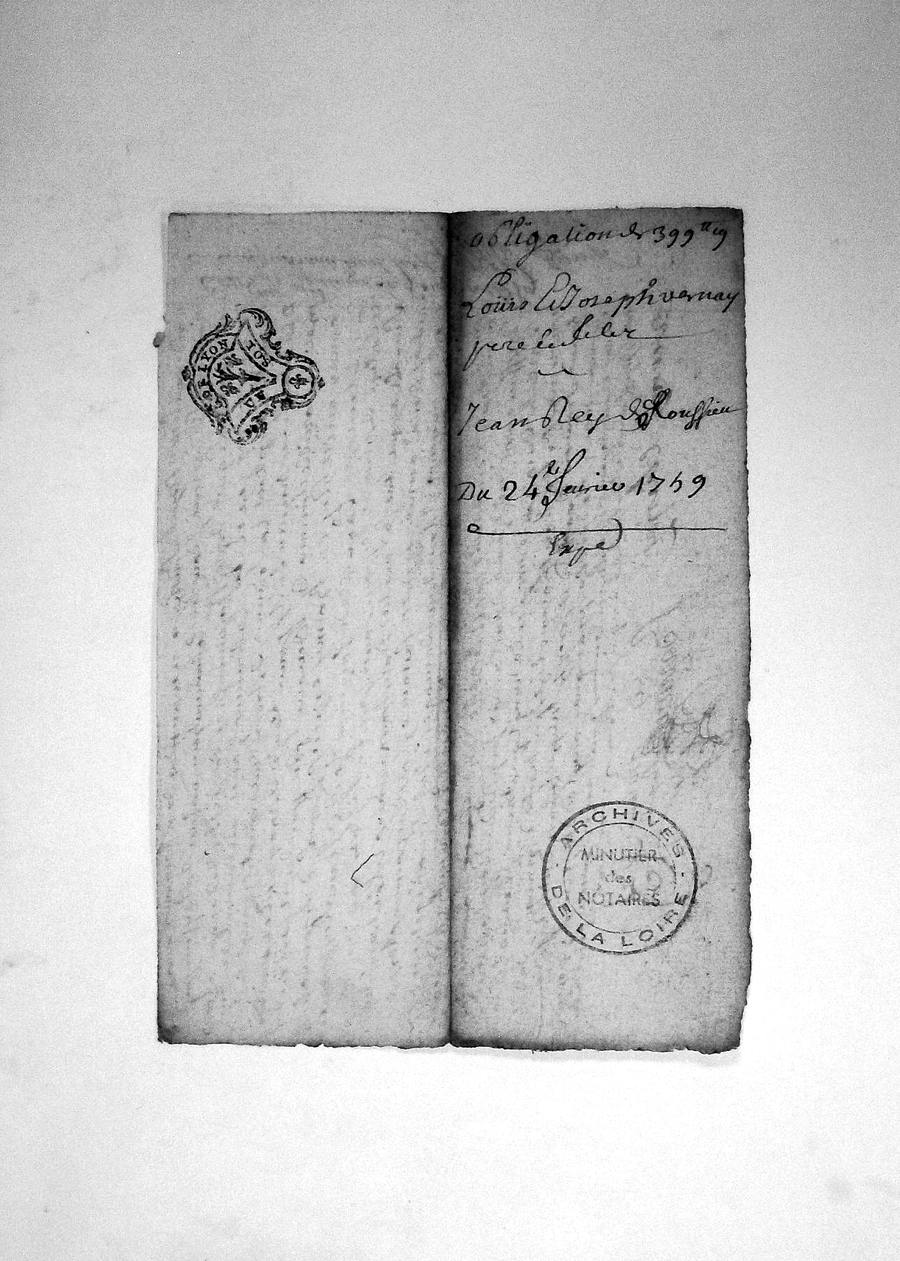 obligation de 399 ₶ 19
Louis Et Joseph vernay
pere et fils
a
Jean Rey de Roussieu
Du 24e fevrier 1759
Expé
GEN. LYON
10 S
ARCHIVES DE LA LOIRE
MINUTIER
des
NOTAIRES